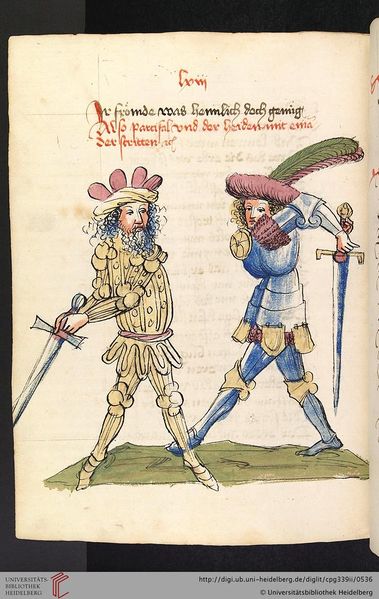 lviij
Ir frömde was heinlich doch genůg
Also partifal vnd der heiden mit eina
der stritten
UNIVERSITÄTS-
BIBLIOTHEK
HEIDELBERG
http://digi.ub.uni-heidelberg.de/diglit/cpg339ii/0536
© Universitätsbibliothek Heidelberg